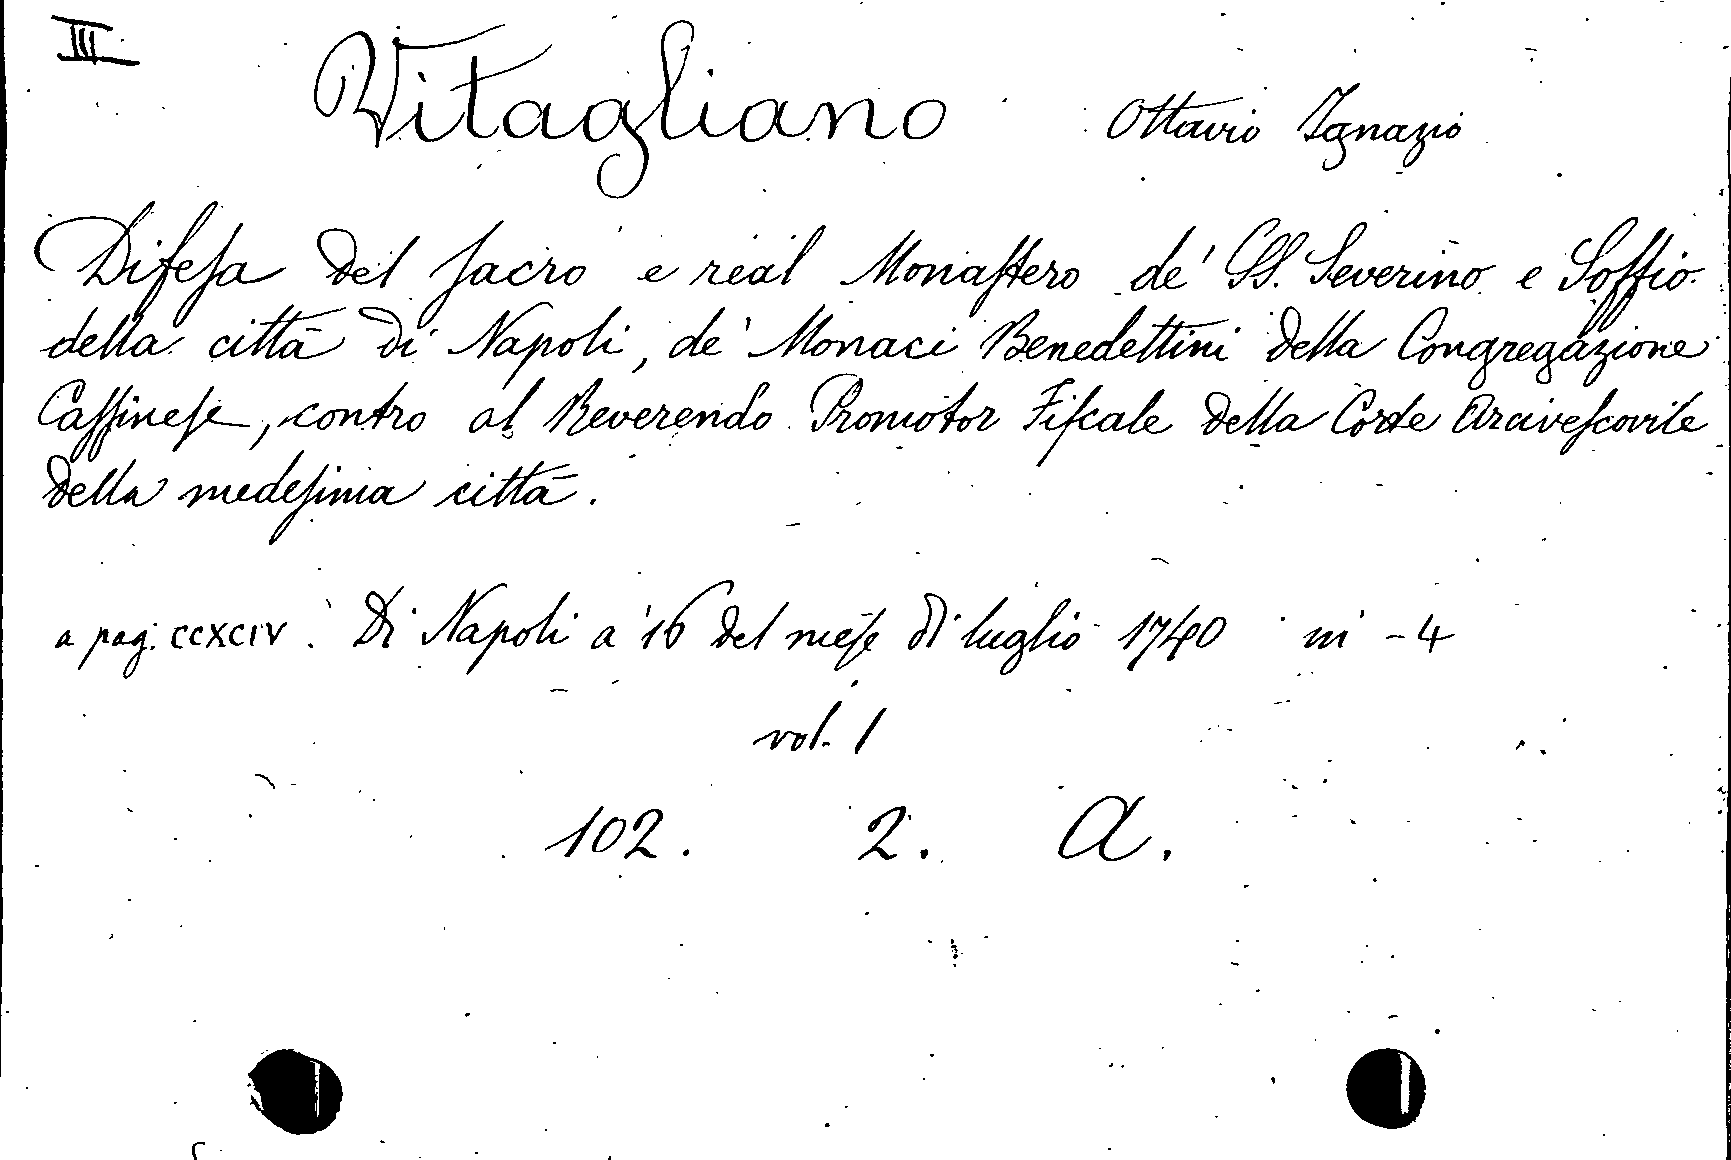 III
Vitagliano Ottavio Ignazio
Difeſa del ſacro e real Monaſtero de' SS. Severino e Soſſio
della città di Napoli, de' Monaci Benedettini della Congregazione
Caſſineſe, contro al Reverendo Promotor Fiſcale della Corte Arciveſcovile
della medeſima città.
a pag. CCXCIV. Di Napoli a' 16 del meſe di luglio 1740 in -4
vol. 1
102. 2. A.